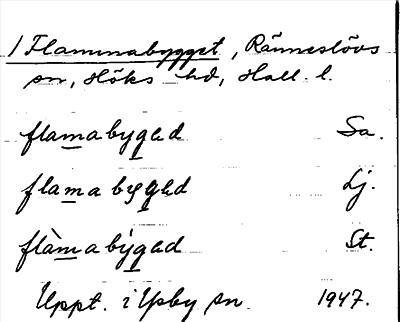 1 Flammabygget, Ränneslövs
sn, Höks hd, Hall. l.
flamabygad Sa.
flamabygad Lj.
flàmabýgad St.
Uppt. i Ysby sn. 1947.